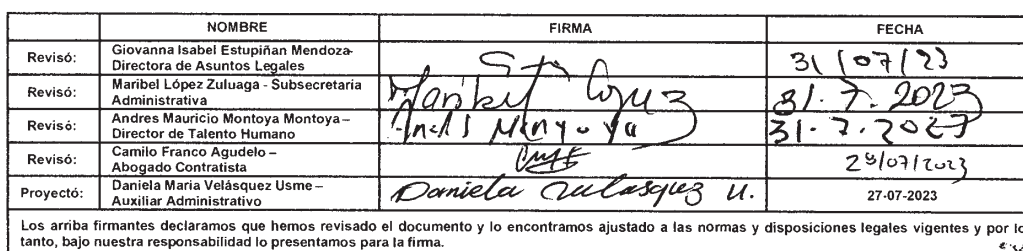 NOMBRE FIRMA FECHA
Revisó: Giovanna Isabel Estupiñan Mendoza-
Directora de Asuntos Legales 31/07/23
Revisó: Maribel López Zuluaga - Subsecretaria
Administrativa Maribel López 31.7.2023
Revisó: Andres Mauricio Montoya Montoya –
Director de Talento Humano Andrés Montoya 31.7.2023
Revisó: Camilo Franco Agudelo –
Abogado Contratista 28/07/2023
Proyectó: Daniela Maria Velásquez Usme –
Auxiliar Administrativo Daniela Velasquez U. 27-07-2023
Los arriba firmantes declaramos que hemos revisado el documento y lo encontramos ajustado a las normas y disposiciones legales vigentes y por lo
tanto, bajo nuestra responsabilidad lo presentamos para la firma.